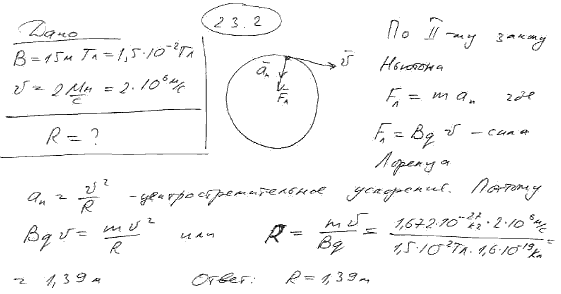 23.2
Дано
B = 15 м Тл = 1,5·10⁻² Тл
v = 2 Мм/с = 2·10⁶ м/с
R = ?
a̅ₙ
v̅
F̅л
По II-му закону
Ньютона
Fл = m aₙ где
Fл = Bq v - сила
Лоренца
aₙ = v²/R - центростремительное ускорение. Поэтому
Bqv = mv²/R или R = mv/Bq = 1,672·10⁻²⁷ кг·2·10⁶ м/с / 1,5·10⁻² Тл·1,6·10⁻¹⁹ Кл =
= 1,39 м Ответ: R = 1,39 м